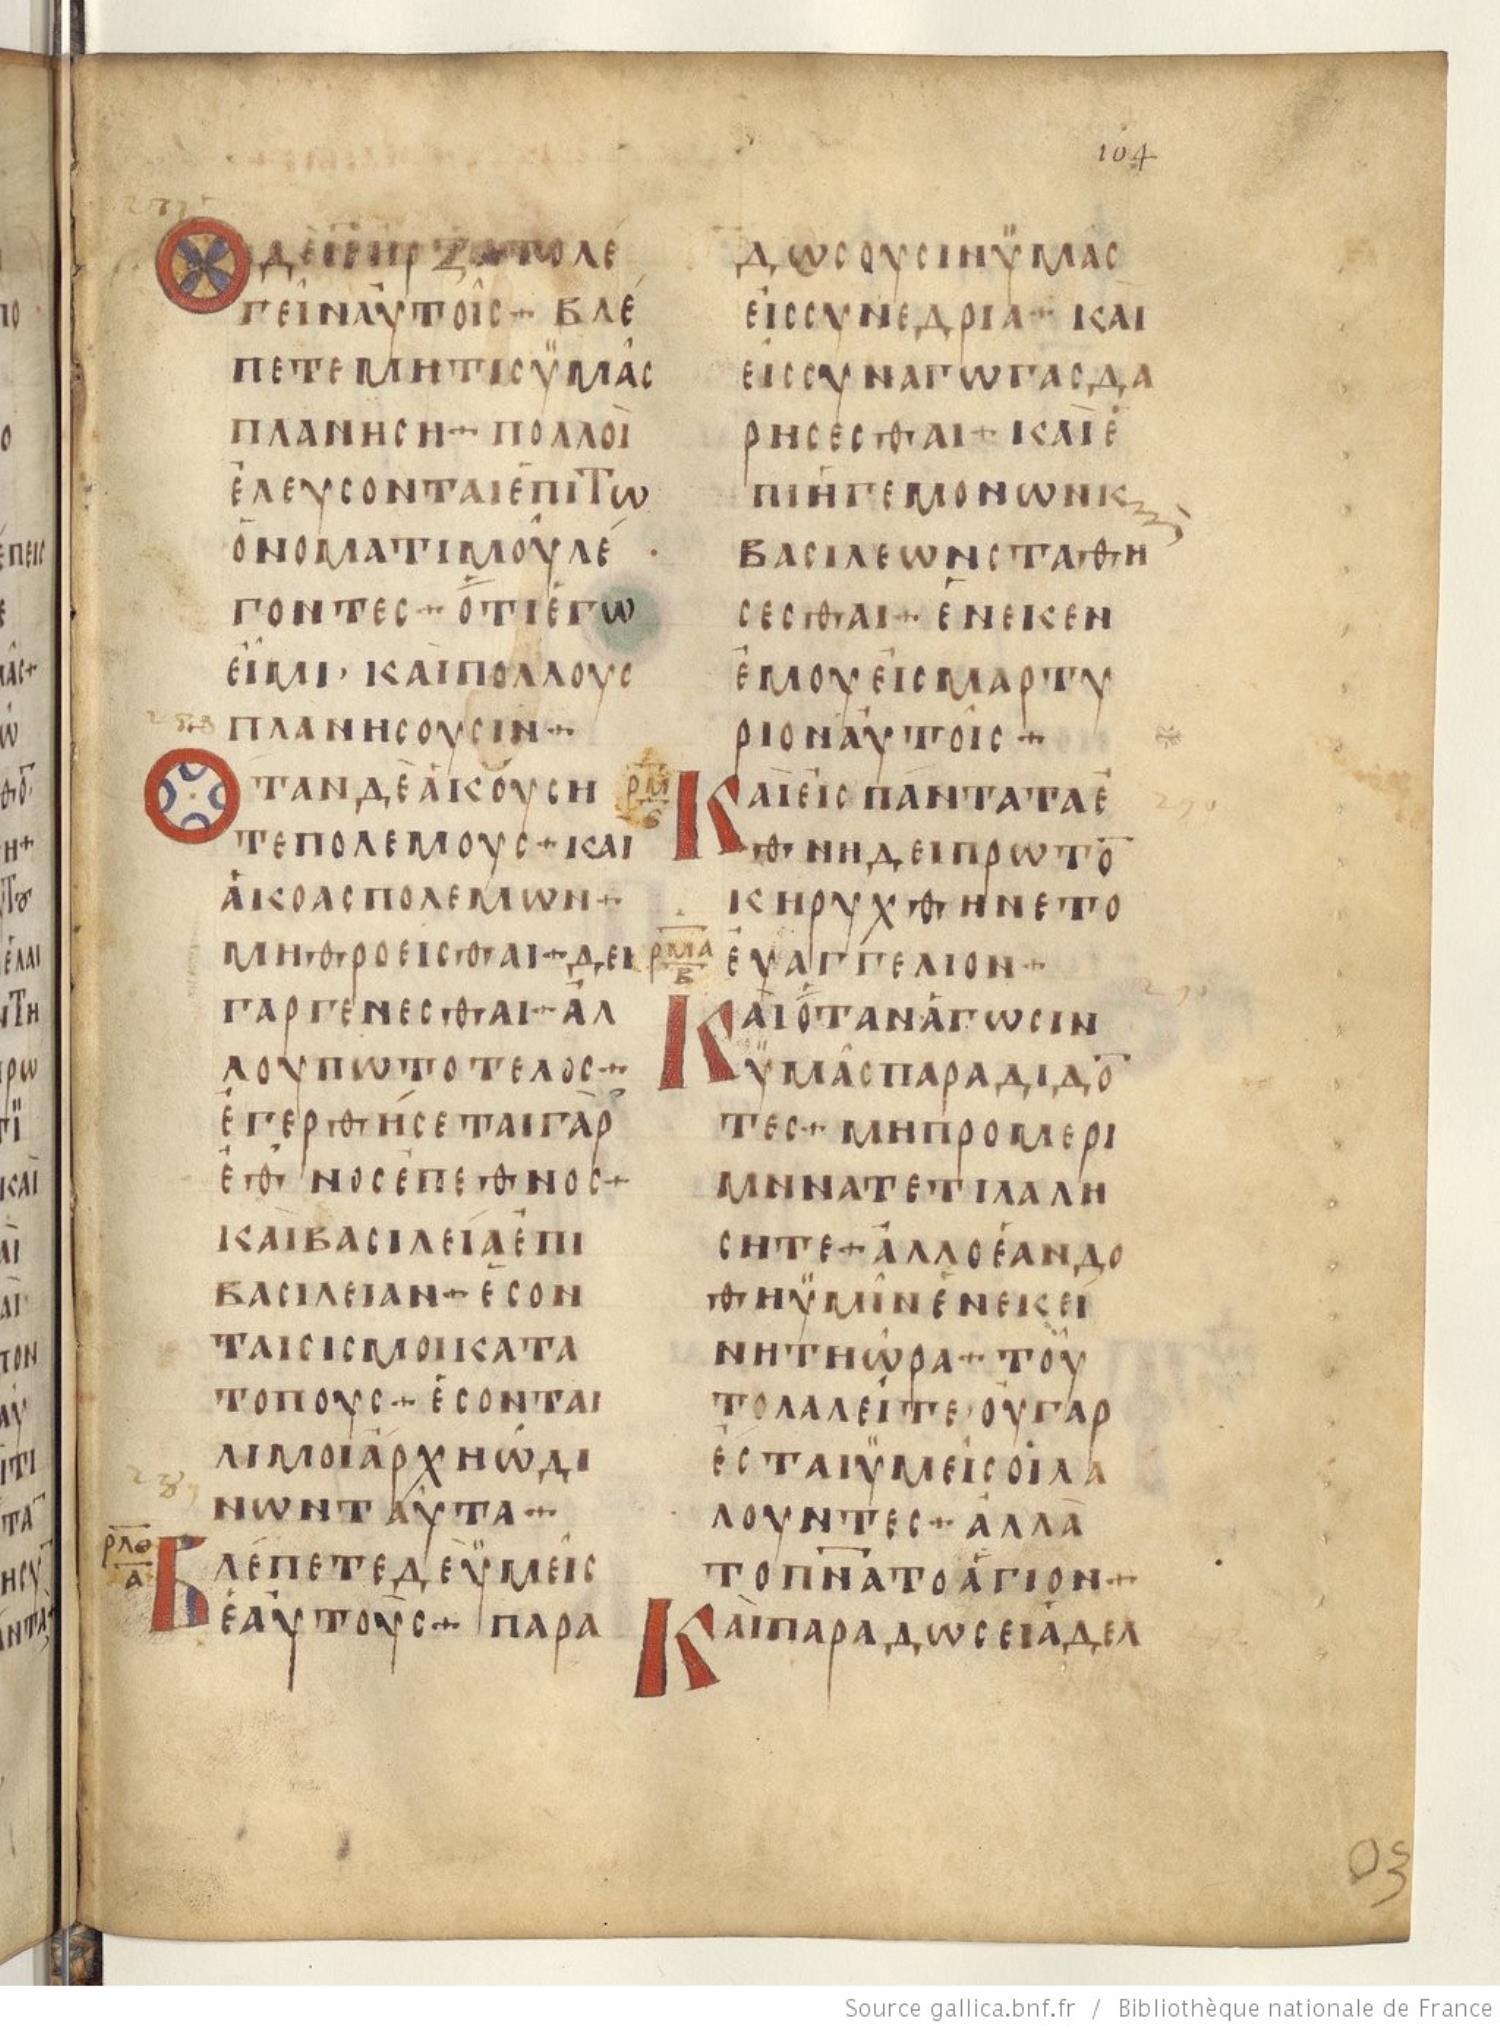 104
Ὁ δὲ ἤρξατο λέ
γειν αὐτοῖς + βλέ
πετε μή τις ϋμᾶς
πλανηση + πολλοὶ
ἐλευσονται ἐπι τω
ὀνοματι μοῦ λέ
γοντες + ὅτι ἐγω
εἰμι, καὶ πολλους
πλανησουσιν +
Ὁταν δὲ ἀκούση
τε πολεμους + και
ἀκοας πολεμων +
μη θροεισθαι + δει
γαρ γενεσθαι + ἀλ
λ ουπω το τελος +
ἐγερθήσεται γὰρ
ἐθνος ἐπ εθνος +
καὶ βασιλεία ἐπι
βασιλειαν + ἐσον
ται σισμοι κατα
τοπους + ἐσονται
λιμοι ἀρχη ὠδι
νων ταῦτα +
ρλθ
α
Βλέπετε δε ϋμεῖς
ἑαυτοὺς + παρα
δωσουσιν ϋμας
εἰς συνεδρια + και
εἰς συναγωγας δα
ρησεσθαι + καὶ ἐ
πι ἡγεμονων κ
βασιλεων σταθη
σεσθαι + ἑνεκεν
ἐμου εἰς μαρτυ
ριον αὐτοῖς +
ρμ
ϛ
Καὶ εἰς πάντα τα ἐ
θνη δει πρωτο̅
κηρυχθηνε το
ρμα
β
ἐυαγγελιον +
Καὶ ὅταν ἀγωσιν
ϋμᾶς παραδιδο̅
τες + μη προμερι
μννατε τι λαλη
σητε + ἀλλ ο ἐαν δο
θη ϋμῖν ἐν ἐκεί
νη τη ὡρα + τοῦ
το λαλεῖτε, οὐ γαρ
ἐσται ϋμεῖς οἱ λα
λουντες + ἀλλὰ
το πν̅α το ἁγιον +
Καὶ παραδωσει ἀδελ
Source gallica.bnf.fr / Bibliothèque nationale de France